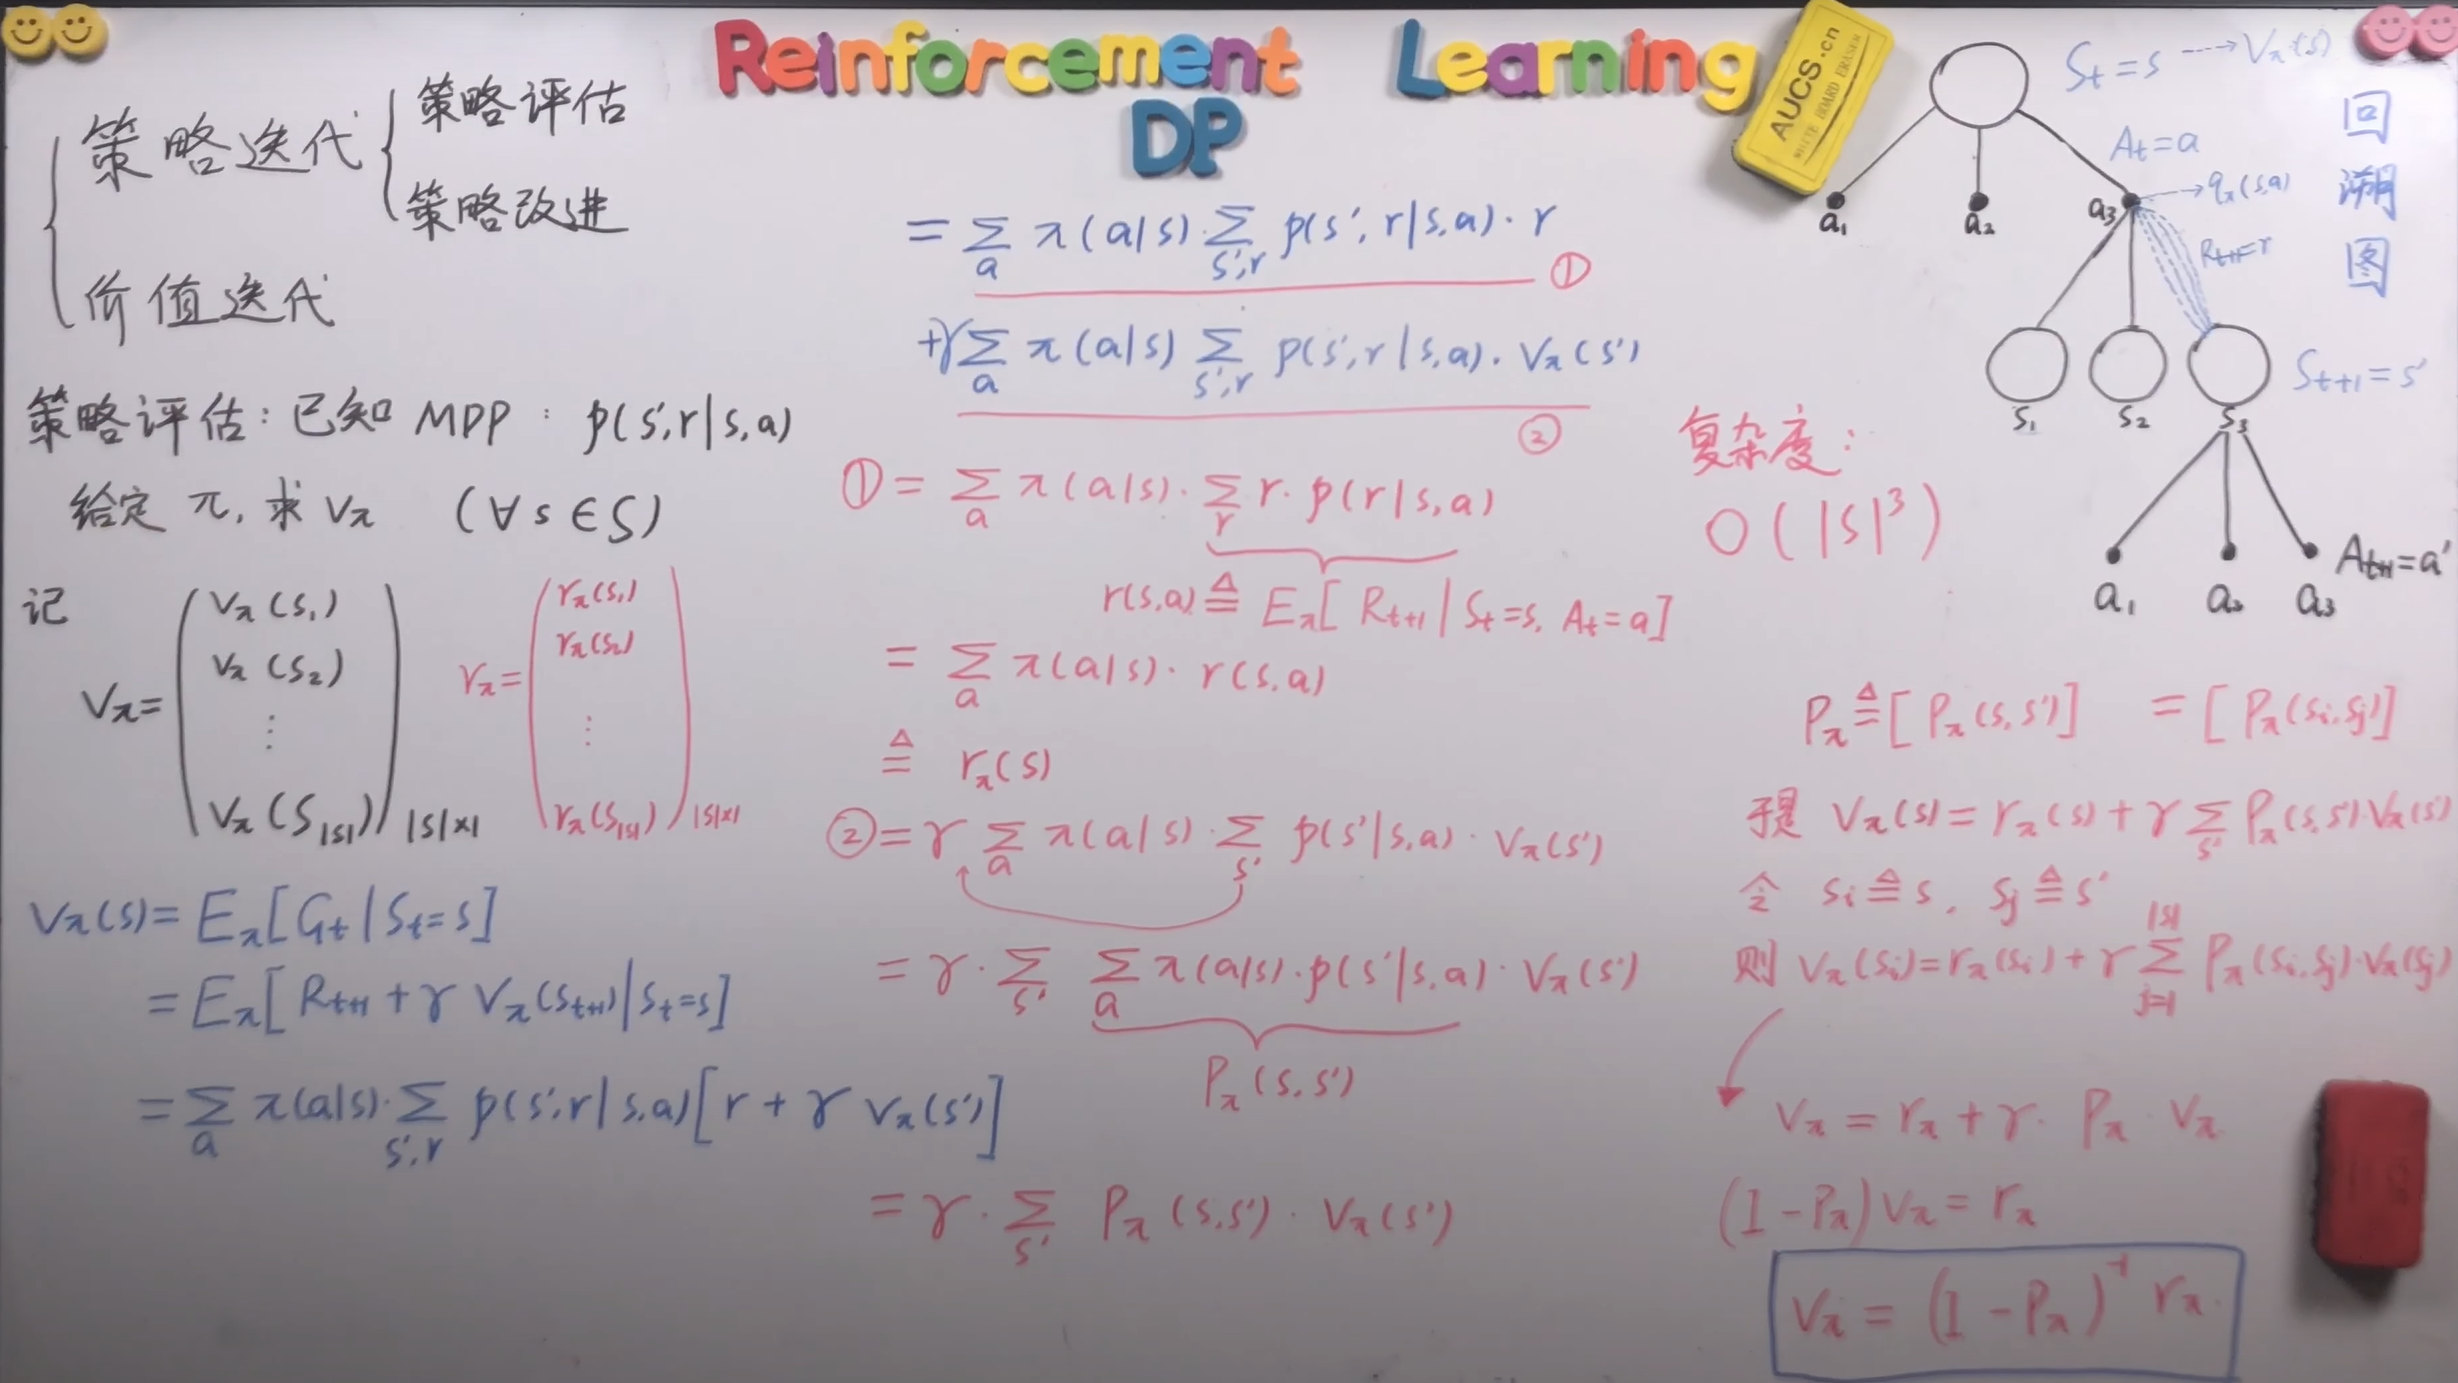 Reinforcement Learning
DP
AUCS.cn
WHITE BOARD ERASER
策略迭代
策略评估
策略改进
价值迭代
策略评估：已知 MDP： p(s′,r|s,a)
给定 π, 求 Vπ （∀s∈S）
记
Vπ = ( Vπ(s₁)
Vπ(s₂)
⋮
Vπ(S|s|) ) |S|×1
rπ = ( rπ(s₁)
rπ(s₂)
⋮
rπ(S|s|) ) |S|×1
Vπ(s) = Eπ[Gt | St=s]
= Eπ[Rt+1 + γ Vπ(St+1) | St=s]
= Σa π(a|s)·Σs′,r p(s′,r|s,a)[r + γ Vπ(s′)]
= Σa π(a|s)·Σs′,r p(s′,r|s,a)·r ①
+γ Σa π(a|s) Σs′,r p(s′,r|s,a)·Vπ(s′) ②
① = Σa π(a|s)·Σr r·p(r|s,a)
r(s,a) ≜ Eπ[Rt+1 | St=s, At=a]
= Σa π(a|s)·r(s,a)
≜ rπ(s)
② = γ Σa π(a|s)·Σs′ p(s′|s,a)·Vπ(s′)
= γ·Σs′ Σa π(a|s)·p(s′|s,a)·Vπ(s′)
Pπ(s,s′)
= γ·Σs′ Pπ(s,s′)·Vπ(s′)
St=s → Vπ(s)
回溯图
At=a
a₁ a₂ a₃ → qπ(s,a)
Rt+1=r
St+1=s′
s₁ s₂ s₃
At+1=a′
a₁ a₂ a₃
复杂度：
O(|S|³)
Pπ ≜ [Pπ(s,s′)] = [Pπ(si,sj)]
于是 Vπ(s) = rπ(s) + γ Σs′ Pπ(s,s′)·Vπ(s′)
令 si ≜ s, sj ≜ s′
则 Vπ(si) = rπ(si) + γ Σj=1|S| Pπ(si,sj)·Vπ(sj)
Vπ = rπ + γ·Pπ·Vπ
(I − Pπ)Vπ = rπ
Vπ = (I − Pπ)⁻¹ rπ.